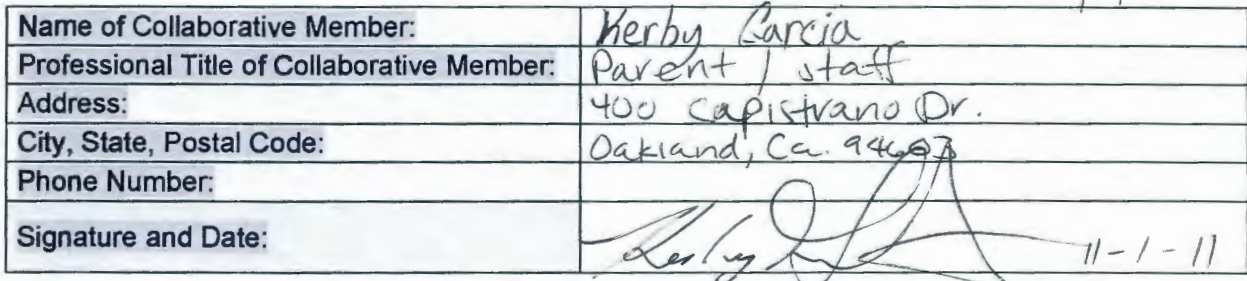 Name of Collaborative Member: Kerby Garcia
Professional Title of Collaborative Member: Parent / staff
Address: 400 Capistrano Dr.
City, State, Postal Code: Oakland, Ca. 94603
Phone Number:
Signature and Date: Kerby 11-1-11